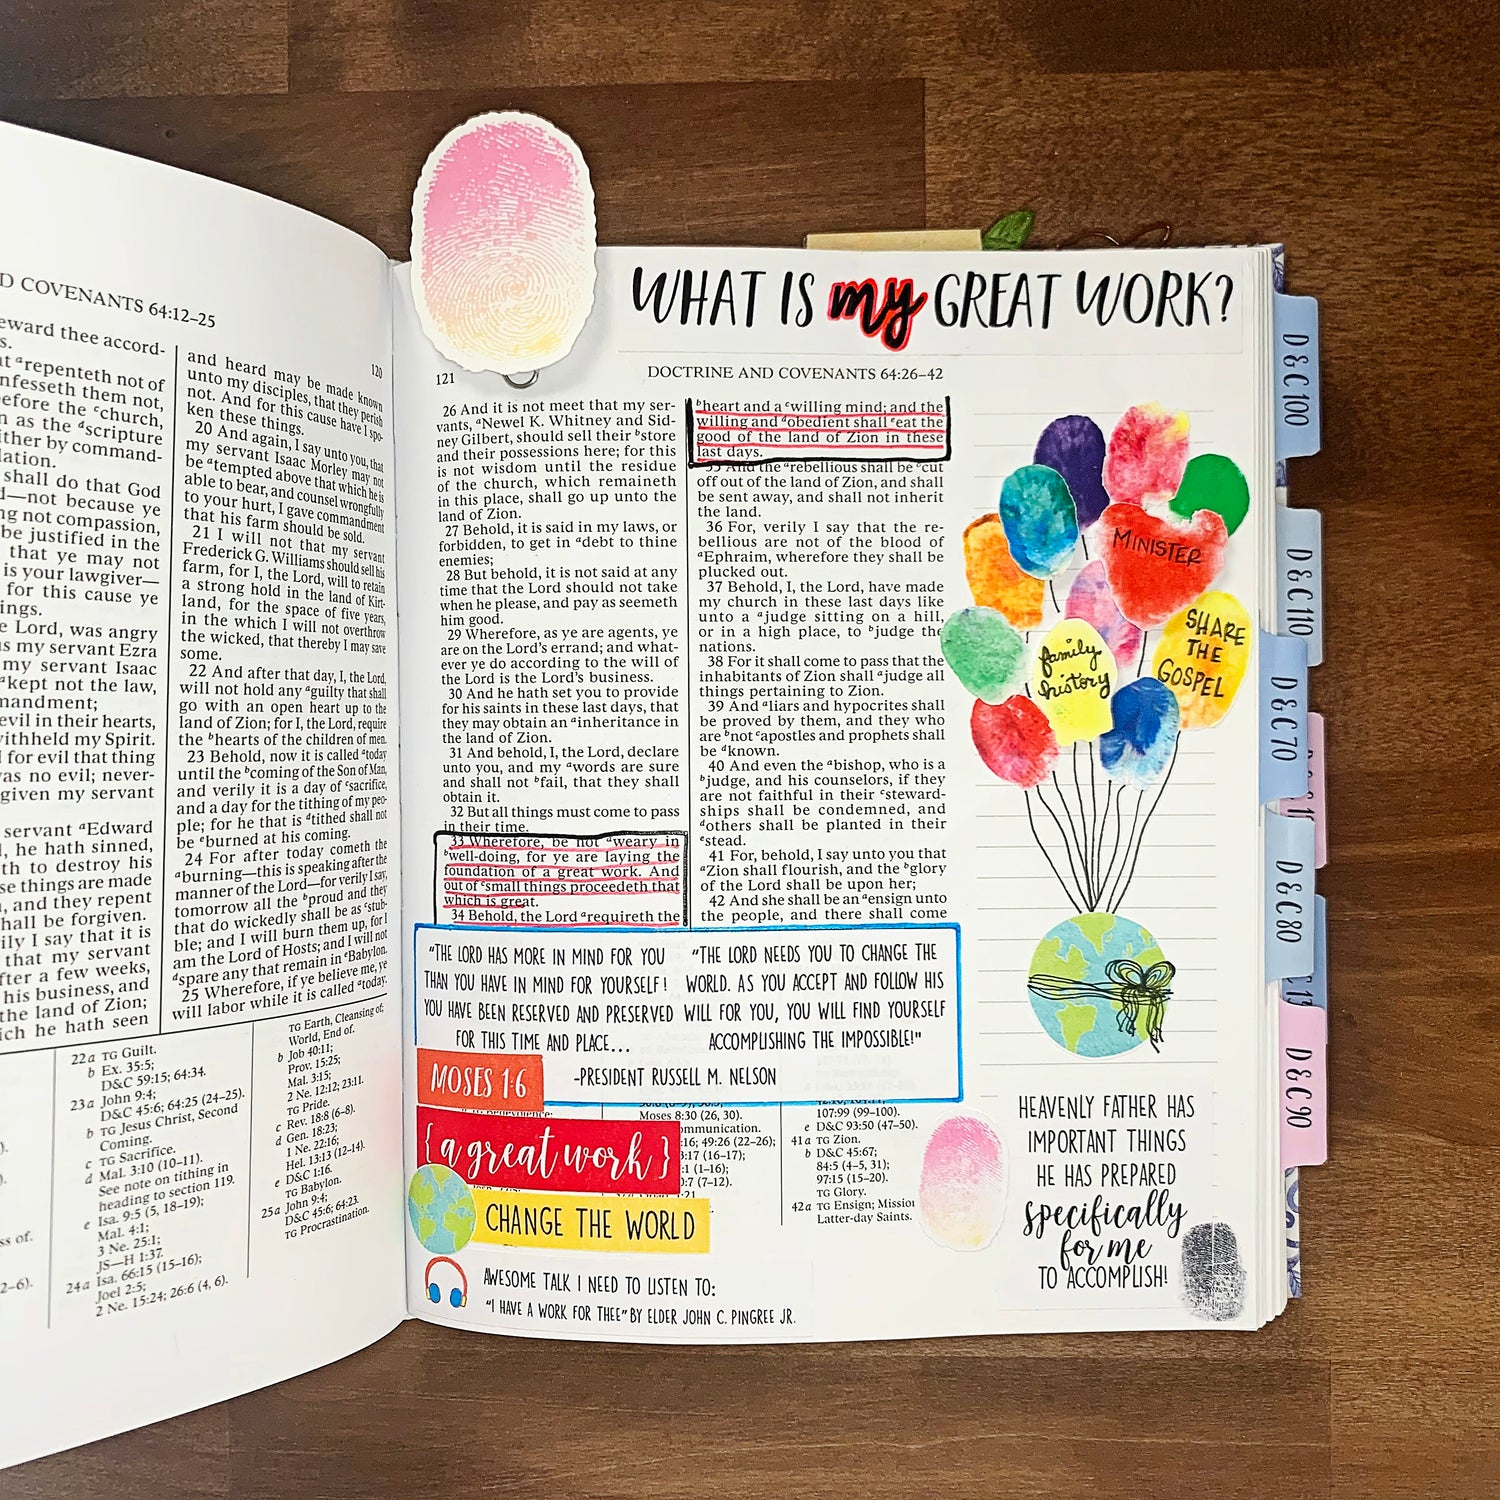 D COVENANTS 64:12–25
eward thee accord-
s.
at ᵃrepenteth not of
nfesseth them not,
efore the ᶜchurch,
n as the ᵈscripture
ither by command-
lation.
shall do that God
d—not because ye
ng not compassion,
be justified in the
that ye may not
is your lawgiver—
for this cause ye
ings.
e Lord, was angry
as my servant Ezra
my servant Isaac
ᵃkept not the law,
mandment;
evil in their hearts,
withheld my Spirit.
d for evil that thing
was no evil; never-
given my servant
servant ᵃEdward
l, he hath sinned,
th to destroy his
se things are made
, and they repent
hall be forgiven.
ily I say that it is
that my servant
fter a few weeks,
his business, and
the land of Zion;
ich he hath seen
120
and heard may be made known
unto my disciples, that they perish
not. And for this cause have I spo-
ken these things.
20 And again, I say unto you, that
my servant Isaac Morley may not
be ᵃtempted above that which he is
able to bear, and counsel wrongfully
to your hurt, I gave commandment
that his farm should be sold.
21 I will not that my servant
Frederick G. Williams should sell his
farm, for I, the Lord, will to retain
a strong hold in the land of Kirt-
land, for the space of five years,
in the which I will not overthrow
the wicked, that thereby I may save
some.
22 And after that day, I, the Lord,
will not hold any ᵃguilty that shall
go with an open heart up to the
land of Zion; for I, the Lord, require
the ᵇhearts of the children of men.
23 Behold, now it is called ᵃtoday
until the ᵇcoming of the Son of Man,
and verily it is a day of ᶜsacrifice,
and a day for the tithing of my peo-
ple; for he that is ᵈtithed shall not
be ᵉburned at his coming.
24 For after today cometh the
ᵃburning—this is speaking after the
manner of the Lord—for verily I say,
tomorrow all the ᵇproud and they
that do wickedly shall be as ᶜstub-
ble; and I will burn them up, for I
am the Lord of Hosts; and I will not
ᵈspare any that remain in ᵉBabylon.
25 Wherefore, if ye believe me, ye
will labor while it is called ᵃtoday.
ss of.
2–6).
22 a TG Guilt.
b Ex. 35:5;
D&C 59:15; 64:34.
23 a John 9:4;
D&C 45:6; 64:25 (24–25).
b TG Jesus Christ, Second
Coming.
c TG Sacrifice.
d Mal. 3:10 (10–11).
See note on tithing in
heading to section 119.
e Isa. 9:5 (5, 18–19);
Mal. 4:1;
3 Ne. 25:1;
JS—H 1:37.
24 a Isa. 66:15 (15–16);
Joel 2:5;
2 Ne. 15:24; 26:6 (4, 6).
TG Earth, Cleansing of;
World, End of.
b Job 40:11;
Prov. 15:25;
Mal. 3:15;
2 Ne. 12:12; 23:11.
TG Pride.
c Rev. 18:8 (6–8).
d Gen. 18:23;
1 Ne. 22:16;
Hel. 13:13 (12–14).
e D&C 1:16.
TG Babylon.
25 a John 9:4;
D&C 45:6; 64:23.
TG Procrastination.
WHAT IS my GREAT WORK?
121
DOCTRINE AND COVENANTS 64:26–42
26 And it is not meet that my ser-
vants, ᵃNewel K. Whitney and Sid-
ney Gilbert, should sell their ᵇstore
and their possessions here; for this
is not wisdom until the residue
of the church, which remaineth
in this place, shall go up unto the
land of Zion.
27 Behold, it is said in my laws, or
forbidden, to get in ᵃdebt to thine
enemies;
28 But behold, it is not said at any
time that the Lord should not take
when he please, and pay as seemeth
him good.
29 Wherefore, as ye are agents, ye
are on the Lord's errand; and what-
ever ye do according to the will of
the Lord is the Lord's business.
30 And he hath set you to provide
for his saints in these last days, that
they may obtain an ᵃinheritance in
the land of Zion.
31 And behold, I, the Lord, declare
unto you, and my ᵃwords are sure
and shall not ᵇfail, that they shall
obtain it.
32 But all things must come to pass
in their time.
33 Wherefore, be not ᵃweary in
ᵇwell-doing, for ye are laying the
foundation of a great work. And
out of ᶜsmall things proceedeth that
which is great.
34 Behold, the Lord ᵃrequireth the
ᵇheart and a ᶜwilling mind; and the
willing and ᵈobedient shall ᵉeat the
good of the land of Zion in these
last days.
35 And the ᵃrebellious shall be ᵇcut
off out of the land of Zion, and shall
be sent away, and shall not inherit
the land.
36 For, verily I say that the re-
bellious are not of the blood of
ᵃEphraim, wherefore they shall be
plucked out.
37 Behold, I, the Lord, have made
my church in these last days like
unto a ᵃjudge sitting on a hill,
or in a high place, to ᵇjudge the
nations.
38 For it shall come to pass that the
inhabitants of Zion shall ᵃjudge all
things pertaining to Zion.
39 And ᵃliars and hypocrites shall
be proved by them, and they who
are ᵇnot ᶜapostles and prophets shall
be ᵈknown.
40 And even the ᵃbishop, who is a
ᵇjudge, and his counselors, if they
are not faithful in their ᶜsteward-
ships shall be condemned, and
ᵈothers shall be planted in their
ᵉstead.
41 For, behold, I say unto you that
ᵃZion shall flourish, and the ᵇglory
of the Lord shall be upon her;
42 And she shall be an ᵃensign unto
the people, and there shall come
"THE LORD HAS MORE IN MIND FOR YOU
THAN YOU HAVE IN MIND FOR YOURSELF!
YOU HAVE BEEN RESERVED AND PRESERVED
FOR THIS TIME AND PLACE...
"THE LORD NEEDS YOU TO CHANGE THE
WORLD. AS YOU ACCEPT AND FOLLOW HIS
WILL FOR YOU, YOU WILL FIND YOURSELF
ACCOMPLISHING THE IMPOSSIBLE!"
-PRESIDENT RUSSELL M. NELSON
MOSES 1:6
{ a great work }
CHANGE THE WORLD
Moses 8:30 (26, 30).
ommunication.
:16; 49:26 (22–26);
:17 (16–17);
:1 (1–16);
:7 (7–12).
:21
107:99 (99–100).
e D&C 93:50 (47–50).
41 a TG Zion.
b D&C 45:67;
84:5 (4–5, 31);
97:15 (15–20).
TG Glory.
42 a TG Ensign; Missio
Latter-day Saints.
AWESOME TALK I NEED TO LISTEN TO:
"I HAVE A WORK FOR THEE" BY ELDER JOHN C. PINGREE JR.
MINISTER
SHARE
THE
GOSPEL
family
history
HEAVENLY FATHER HAS
IMPORTANT THINGS
HE HAS PREPARED
specifically
for me
TO ACCOMPLISH!
D&C 100
D&C 110
D&C 70
D&C 80
D&C 90